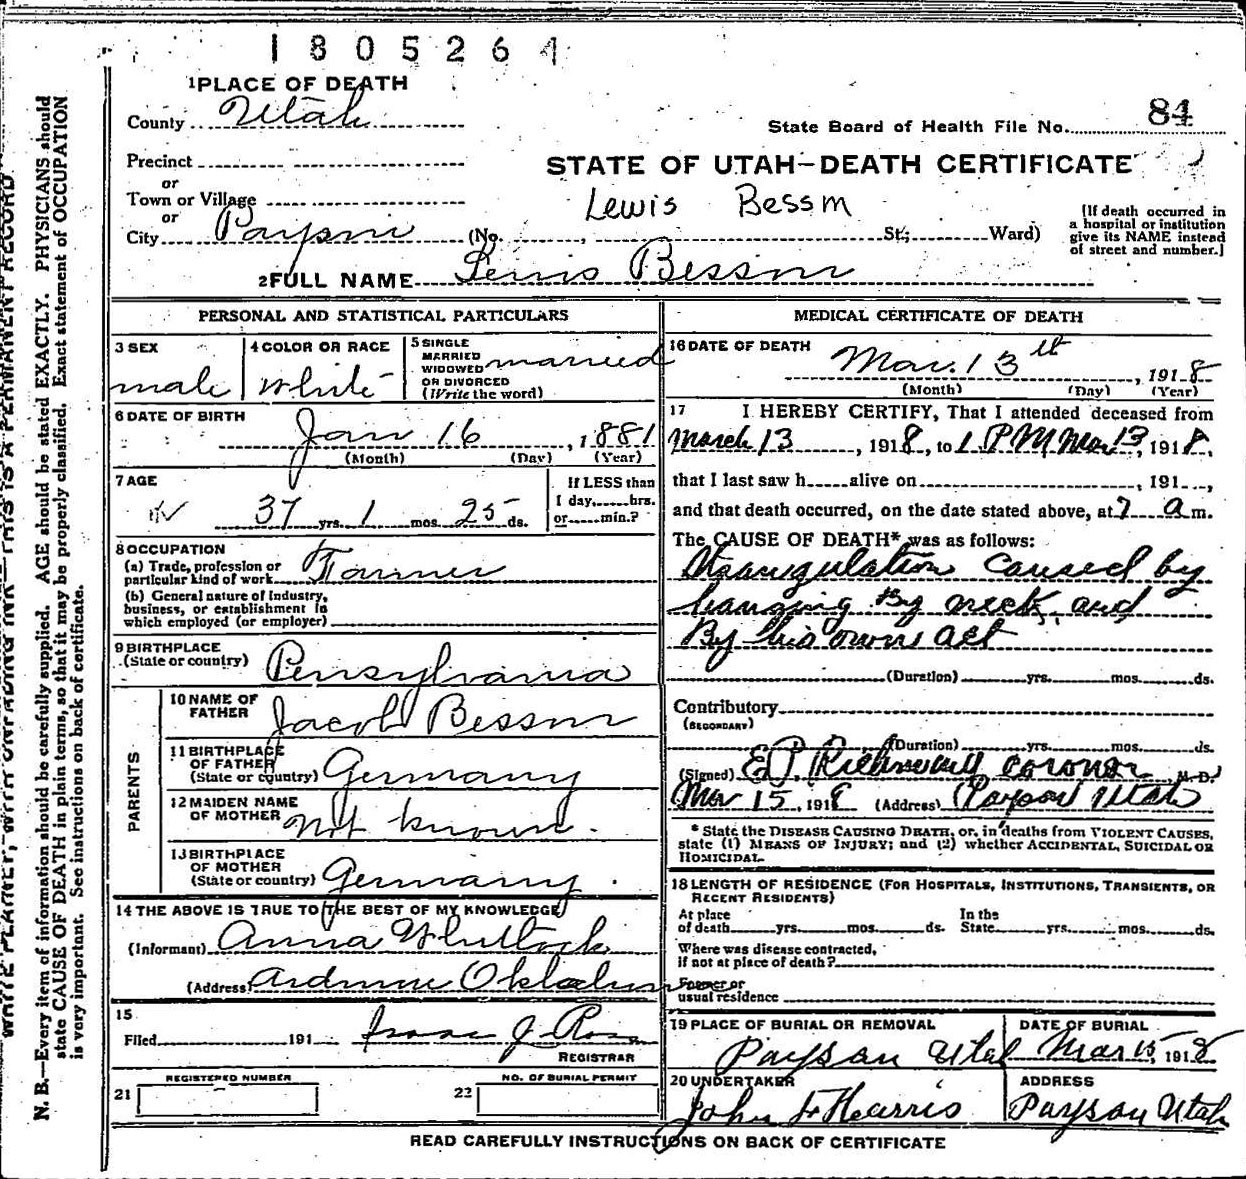 1805264
1 PLACE OF DEATH
County Utah
State Board of Health File No. 84
Precinct
or
Town or Village
or
City Payson (No. , St; Ward)
STATE OF UTAH—DEATH CERTIFICATE
Lewis Bessm
[If death occurred in
a hospital or institution
give its NAME instead
of street and number.]
2 FULL NAME Lewis Bessm
PERSONAL AND STATISTICAL PARTICULARS
3 SEX
male
4 COLOR OR RACE
White
5 SINGLE
MARRIED
WIDOWED
OR DIVORCED
(Write the word)
married
6 DATE OF BIRTH
Jan 16, 1881
(Month) (Day) (Year)
7 AGE
37 yrs. 1 mos. 25 ds.
If LESS than
1 day, hrs.
or min.?
8 OCCUPATION
(a) Trade, profession or
particular kind of work Farmer
(b) General nature of Industry,
business, or establishment in
which employed (or employer)
9 BIRTHPLACE
(State or country) Pensylvania
PARENTS
10 NAME OF
FATHER Jacob Bessm
11 BIRTHPLACE
OF FATHER
(State or country) Germany
12 MAIDEN NAME
OF MOTHER Not known.
13 BIRTHPLACE
OF MOTHER
(State or country) Germany.
14 THE ABOVE IS TRUE TO THE BEST OF MY KNOWLEDGE
(Informant) Anna Whitlock
(Address)
15
Filed 191
REGISTRAR
REGISTERED NUMBER
21
NO. OF BURIAL PERMIT
22
MEDICAL CERTIFICATE OF DEATH
16 DATE OF DEATH
Mar. 13th, 1918
(Month) (Day) (Year)
17 I HEREBY CERTIFY, That I attended deceased from
March 13, 1918, to 1 PM Mar 13, 1918,
that I last saw h alive on , 191 ,
and that death occurred, on the date stated above, at 7 a m.
The CAUSE OF DEATH* was as follows:
Strangulation Caused by
hanging By neck, and
By his own act
(Duration) yrs. mos. ds.
Contributory
(SECONDARY)
(Duration) yrs. mos. ds.
(Signed) coroner M.D.
Mar 15, 1918 (Address) Payson Utah
* State the DISEASE CAUSING DEATH, or, in deaths from VIOLENT CAUSES,
state (1) MEANS OF INJURY; and (2) whether ACCIDENTAL, SUICIDAL OR
HOMICIDAL.
18 LENGTH OF RESIDENCE (FOR HOSPITALS, INSTITUTIONS, TRANSIENTS, OR
RECENT RESIDENTS)
At place
of death yrs. mos. ds.
In the
State yrs. mos. ds.
Where was disease contracted,
if not at place of death?
Former or
usual residence
19 PLACE OF BURIAL OR REMOVAL
Payson Utah
DATE OF BURIAL
Mar 15, 1918
20 UNDERTAKER
John F Hearris
ADDRESS
Payson Utah
READ CAREFULLY INSTRUCTIONS ON BACK OF CERTIFICATE
THIS IS A PERMANENT RECORD
N. B.—Every item of information should be carefully supplied. AGE should be stated EXACTLY. PHYSICIANS should
state CAUSE OF DEATH in plain terms, so that it may be properly classified. Exact statement of OCCUPATION
is very important. See instructions on back of certificate.